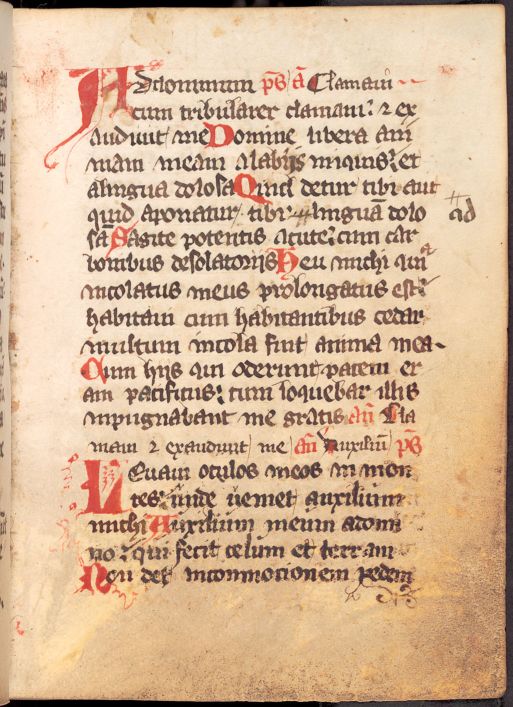 Ad dominum p̄s ā Clamaui
cum tribularer clamaui: ⁊ ex
audiuit me Domine libera ani
mam meam alabijs iniquis: et
alingua dolosa Quid detur tibi aut
quid aponatur tibi alinguā dolo ad
sā Sagite potentis acute: cum car
bonibus desolatorijs Heu michi quia
incolatus meus prolongatus est:
habitaui cum habitantibus cedar
multum incola fuit anima mea
Cum hijs qui oderunt pacem er
am pacificus: cum loquebar illis
inpugnabant me gratis añ Cla
maui ⁊ exaudiuit me añ Auxiliū p̄s
Leuaui oculos meos in mon
tes: unde ueniet auxilium
michi Auxilium meum adomi
no: qui fecit celum et terram
Non det incommotionem pedem